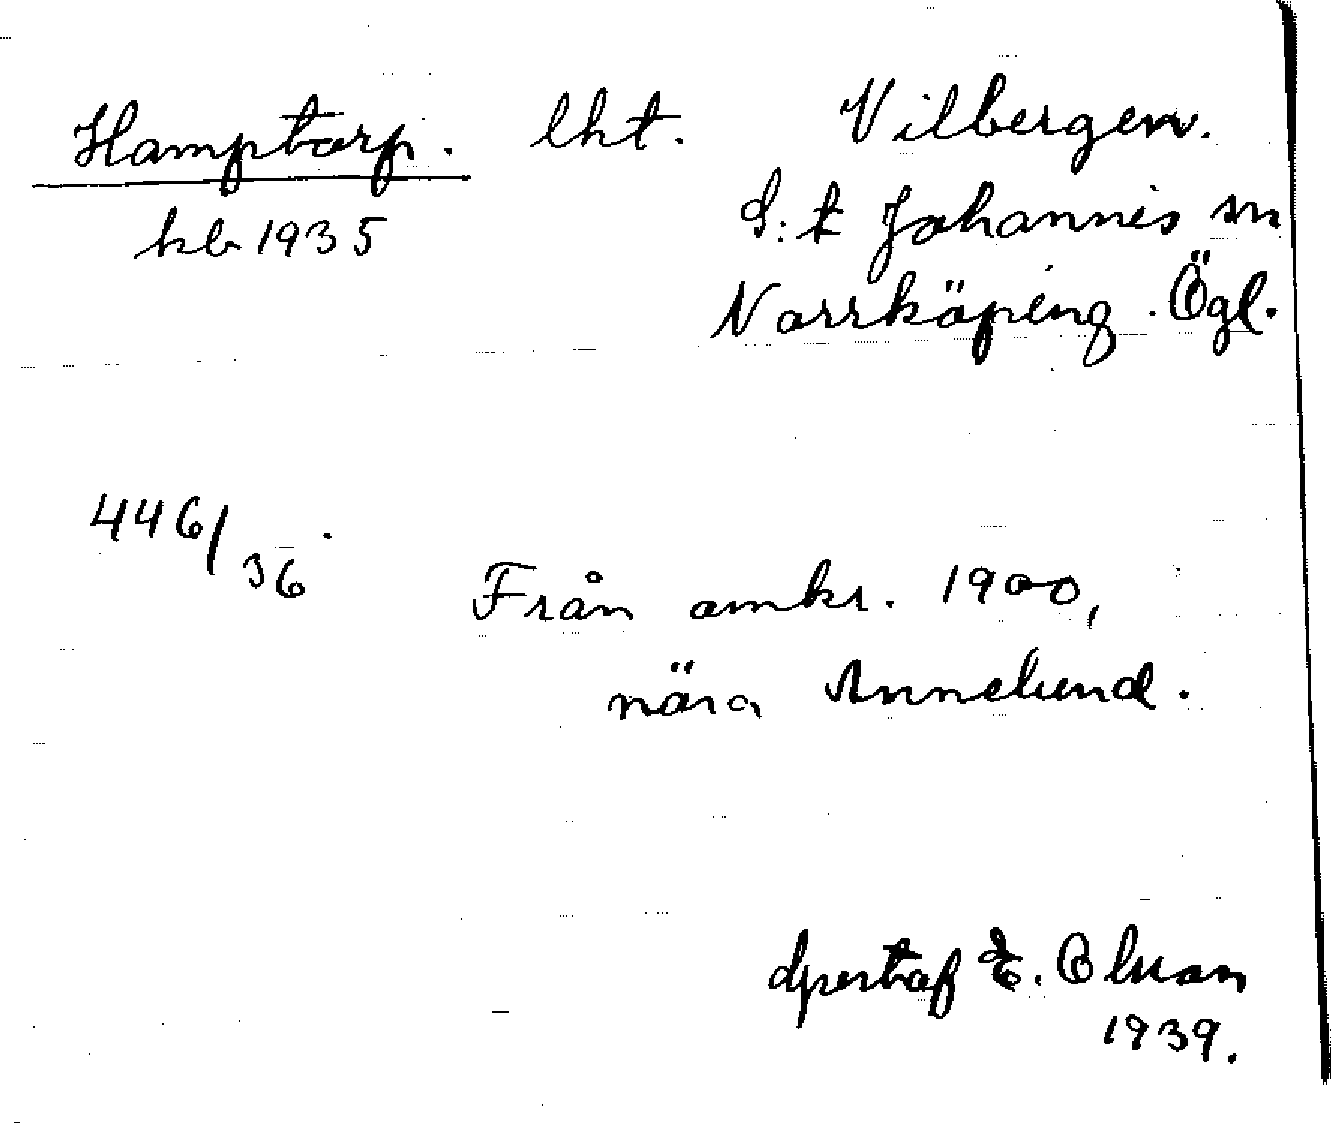 Hamptorp. lht. Vilbergen.
kb 1935 S:t Johannis sn
Norrköping. Ögl.
446/36.
Från omkr. 1900,
nära Annelund.
Gustaf E. Olsson
1939.